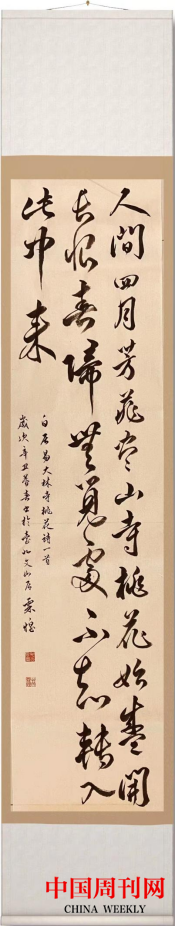 人間四月芳菲盡山寺桃花始盛開
長恨春歸無覓處不知轉入
此中來
白居易大林寺桃花詩一首
歲次辛丑暮春書於臺北
中国周刊网
CHINA WEEKLY